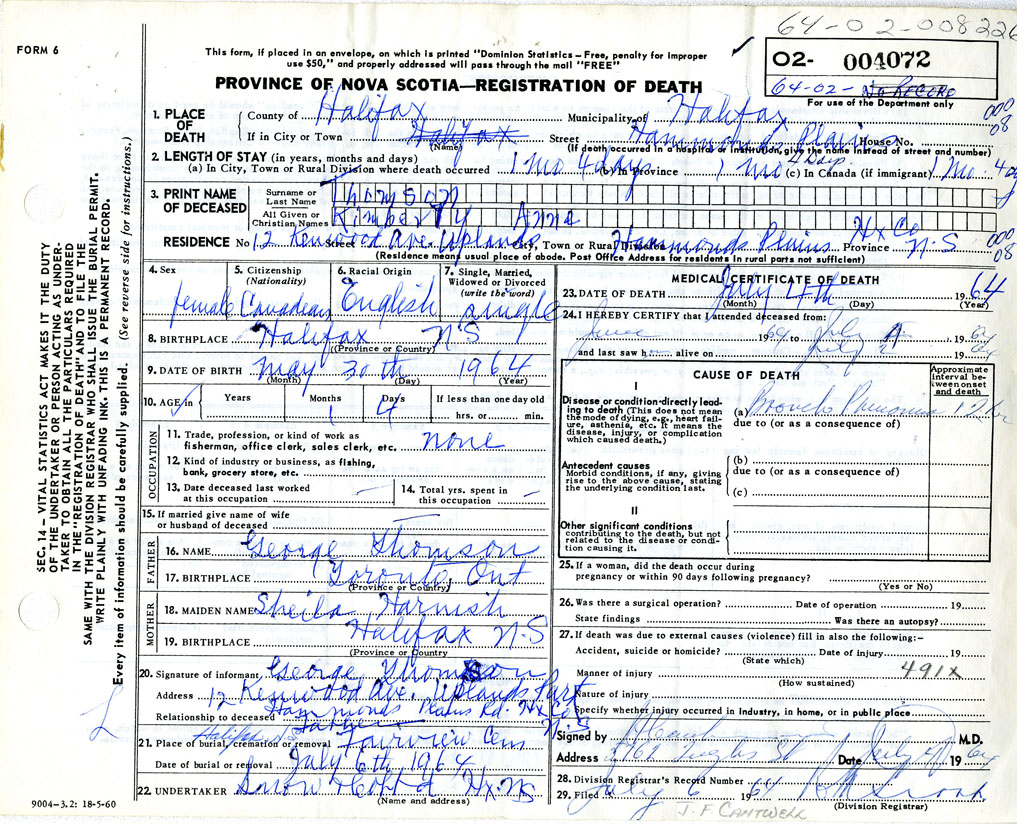 64-02-008226
FORM 6
This form, if placed in an envelope, on which is printed "Dominion Statistics—Free, penalty for improper
use $50," and properly addressed will pass through the mail "FREE"
02- 004072
64-02- No RECORD
For use of the Department only
PROVINCE OF NOVA SCOTIA—REGISTRATION OF DEATH
1. PLACE OF DEATH County of Halifax Municipality of Halifax 000 08
If in City or Town Halifax (Name) Street Hammonds Plains House No.
(If death occurred in a hospital or institution, give the name instead of street and number)
2. LENGTH OF STAY (in years, months and days)
(a) In City, Town or Rural Division where death occurred 1 Mo 4 days (b) In Province 1 Mo 4 days (c) In Canada (if immigrant) 1 Mo. 4 d
3. PRINT NAME OF DECEASED
Surname or Last Name Thomson
All Given or Christian Names Kimberly Anne
RESIDENCE No 12 Kenwood Ave. Uplands Street City, Town or Rural Division Hammonds Plains Hx Co Province N-S 000 08
(Residence means usual place of abode. Post Office Address for residents in rural parts not sufficient)
4. Sex female
5. Citizenship (Nationality) Canadian
6. Racial Origin English
7. Single, Married, Widowed or Divorced (write the word) single
8. BIRTHPLACE Halifax N S
(Province or Country)
9. DATE OF BIRTH May 30th 1964
(Month) (Day) (Year)
10. AGE in Years Months 1 Days 4 If less than one day old hrs. or min.
OCCUPATION
11. Trade, profession, or kind of work as fisherman, office clerk, sales clerk, etc. none
12. Kind of industry or business, as fishing, bank, grocery store, etc.
13. Date deceased last worked at this occupation —
14. Total yrs. spent in this occupation —
15. If married give name of wife or husband of deceased —
FATHER
16. NAME George Thomson
17. BIRTHPLACE Toronto Ont
(Province or Country)
MOTHER
18. MAIDEN NAME Sheila Harnish
19. BIRTHPLACE Halifax N-S
(Province or Country
20. Signature of informant George Thomson
Address 12 Kenwood Ave. Uplands Park
Hammonds Plains Rd. Hx Co
Relationship to deceased Father N-S
21. Place of burial, cremation or removal Halifax N-S Fairview Cem
Date of burial or removal July 6th 1964
22. UNDERTAKER Snow Hx. N-S
(Name and address)
9004—3.2: 18-5-60
MEDICAL CERTIFICATE OF DEATH
23. DATE OF DEATH July 4th 1964
(Month) (Day) (Year)
24. I HEREBY CERTIFY that I attended deceased from:
June 1964 to July 4, 1964
and last saw h alive on July 2 1964
CAUSE OF DEATH
Approximate interval between onset and death
I
Disease or condition directly leading to death (This does not mean the mode of dying, e.g., heart failure, asthenia, etc. It means the disease, injury, or complication which caused death.)
(a) Broncho Pneumonia 12 hr
due to (or as a consequence of)
Antecedent causes
Morbid conditions, if any, giving rise to the above cause, stating the underlying condition last.
(b)
due to (or as a consequence of)
(c)
II
Other significant conditions
contributing to the death, but not related to the disease or condition causing it.
25. If a woman, did the death occur during pregnancy or within 90 days following pregnancy?
(Yes or No)
26. Was there a surgical operation? Date of operation 19
State findings Was there an autopsy?
27. If death was due to external causes (violence) fill in also the following:—
Accident, suicide or homicide? Date of injury 19
(State which)
Manner of injury 491X
(How sustained)
Nature of injury
Specify whether injury occurred in Industry, in home, or in public place
Signed by M.D.
Address Inglis St Date July 1964
28. Division Registrar's Record Number
29. Filed July 6 1964
(Division Registrar)
J. F CANTWELL
SEC. 14 – VITAL STATISTICS ACT MAKES IT THE DUTY
OF THE UNDERTAKER OR PERSON ACTING AS UNDERTAKER
TO OBTAIN ALL THE PARTICULARS REQUIRED
IN THE "REGISTRATION OF DEATH" AND TO FILE THE
SAME WITH THE DIVISION REGISTRAR WHO SHALL ISSUE THE BURIAL PERMIT.
WRITE PLAINLY WITH UNFADING INK. THIS IS A PERMANENT RECORD.
Every item of information should be carefully supplied. (See reverse side for instructions.)